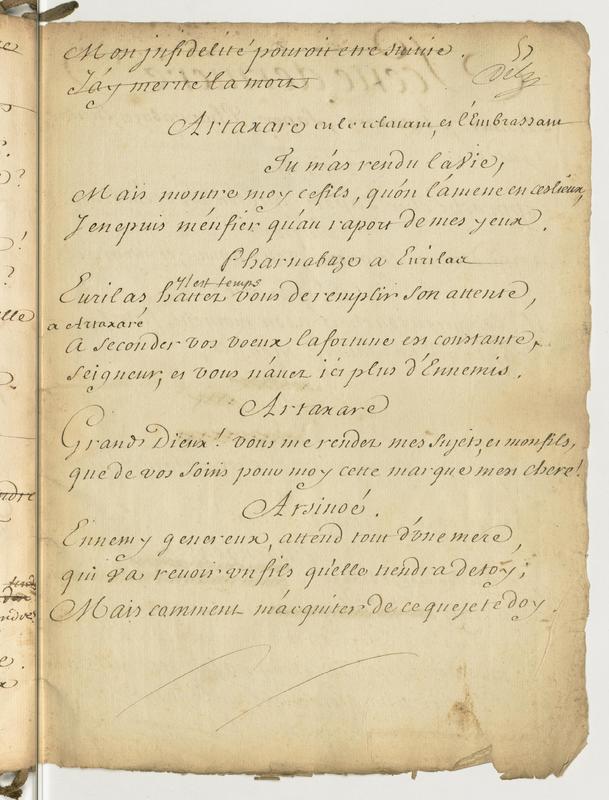 Mon jnfidelité pouroit etre suivie.
J'ay merité la mort
57
Artaxare en le relevant, et l'Embrassant
Tu m'as rendu la vie,
Mais montre moy ce fils, qu'on l'amene en ces lieux,
Je ne puis m'en fier qu'au raport de mes yeux.
Pharnabaze a Eurilas
y'l est temps
Eurilas, hattez vous de remplir son attente,
a Artaxare
A seconder vos voeux la fortune est constante,
Seigneur, et vous n'avez ici plus d'Ennemis.
Artaxare
Grands Dieux! vous me rendez mes Sujets, et mon fils,
que de vos soins pour moy cette marque m'est chere!
Arsinoé.
Ennemy genereux, attend tout d'une mere,
qui va revoir un fils qu'elle tiendra de toy;
Mais comment m'acquiter de ce que je te doy.